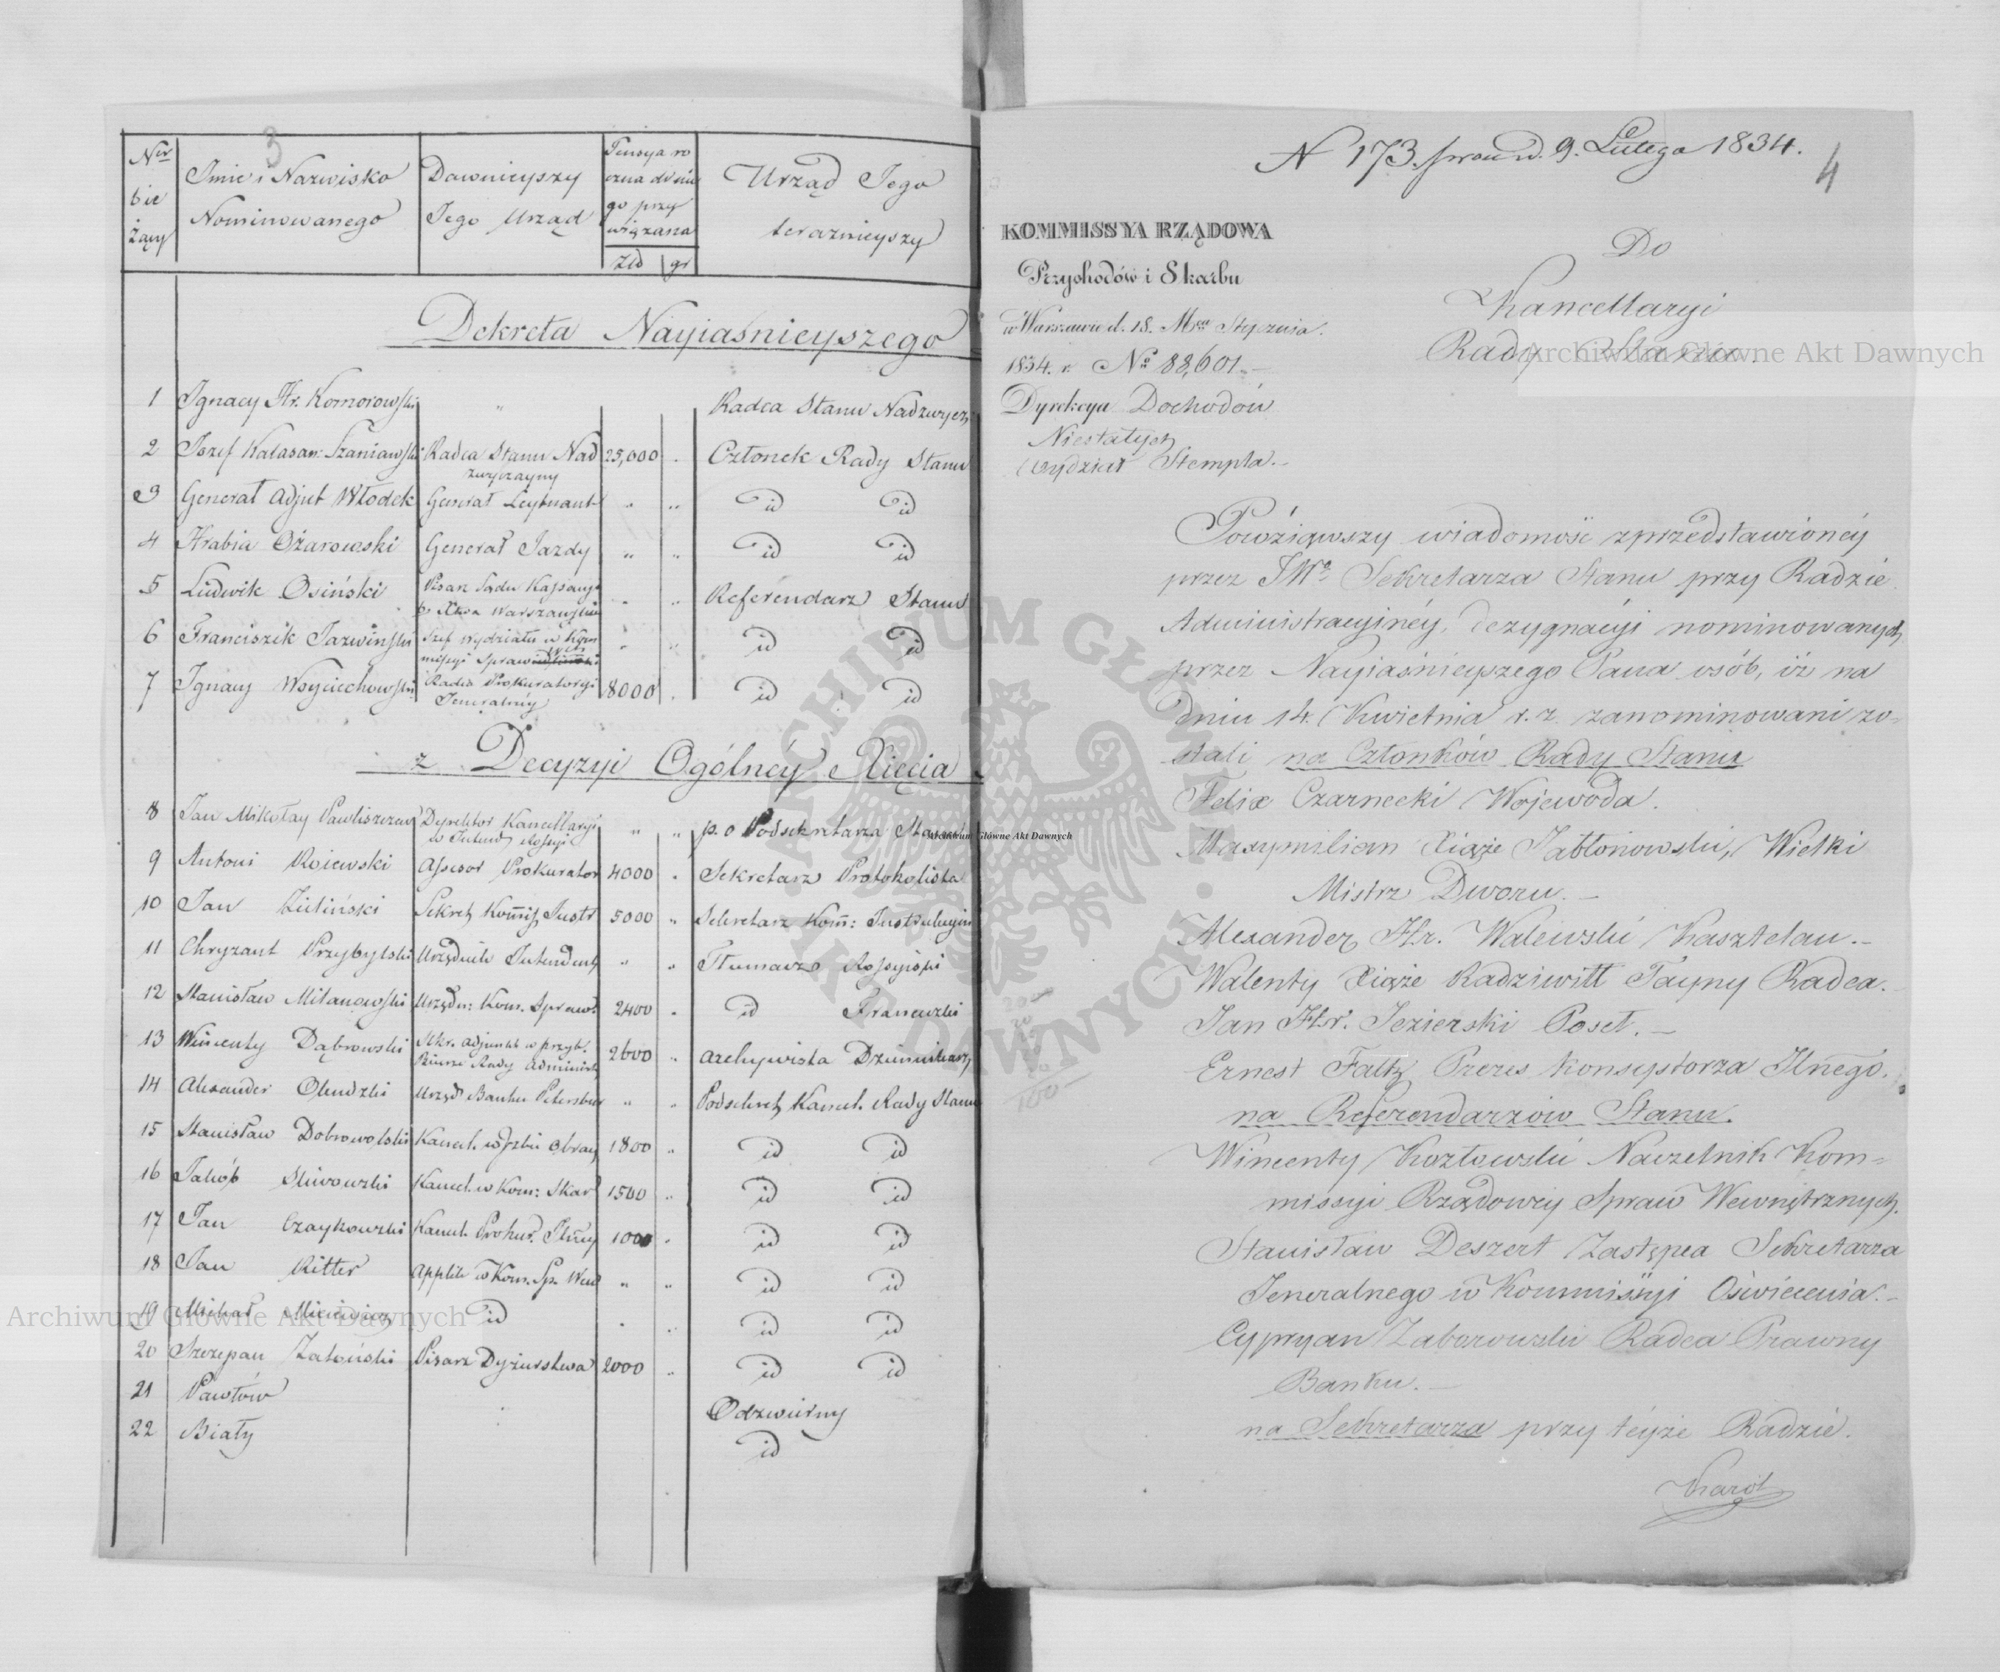 3
Nr
bie
żący
Imie i Nazwisko
Nominowanego
Dawnieyszy
Jego Urząd
Pensya ro
czna do nie
go przy
wiązana
Złp gr
Urząd Jego
teraznieyszy
Dekreta Nayiaśnieyszego
1 Ignacy Hr. Komorowski " Radca Stanu Nadzwycz.
2 Józef Kalasan: Szaniawski Radca Stanu Nad 25,000 . Członek Rady Stanu
zwyczayny
3 Generał Adjut Włodek Generał Leytnant " " id id
4 Hrabia Ożarowski Generał Jazdy " " id id
5 Ludwik Osiński Pisarz Sadu Kassacy " " Referendarz Stanu
Xtwa Warszawskie
6 Franciszik Jazwinski Szef wydziału w Kom " " id id
missyi Spraw
7 Ignacy Woyciechowski Radca Prokuratoryi 8000 . id id
Jeneralnéy
z Decyzyi Ogólnéy Xięcia
8 Jan Mikołay Pawliszczew Dyrektor Kancellaryi " " p.o Podsekretarza Stanu
w Intend. Rossyi
9 Antoni Roiewski Assesor Prokurator 4000 . Sekretarz Protokolista
10 Jan Zieliński Sekret. Komis. Instr 5000 " Sekretarz Kom: Instrukcyin
11 Chryzant Przybylski Urzędnik Intendent " " Tłumacz Rossyiski
12 Stanisław Milanowski Urzędn: Kom. Sprawd. 2400 . id Francuzki
13 Wincenty Dąbrowski Sekr. adjunkt w przyb. 2600 " Archywista Dziennikarz
Biurze Rady Administ
14 Alexander Olendzki Urzęd Banku Petersbur " " Podsekret. Kancel. Rady Stanu
15 Stanisław Dobrowolski Kancel. w Izbie Obrac 1800 " id id
16 Jakób Sliwowski Kancel. w Kom: Skar 1500 " id id
17 Jan Czaykowski Kancel. Prokur. Jlnéy 1000 . id id
18 Jan Ritter Applik w Kom. Sp. Wew " " id id
19 Michał Mickiewicz id . " id id
20 Szczepan Zaleński Pisarz Dyżurstwa 2000 . id id
21 Pawłów Odzwierny
22 Biały id
N 173. 9. Lutego 1834.
4
KOMMISSYA RZĄDOWA
Przychodów i Skarbu
w Warszawie d. 18. Mca Stycznia.
1834. r. No 88,601.-
Dyrekcya Dochodów
Niestałych
Wydział Stempla.-
Do
Kancellaryi
Rady Stanu
Powziąwszy wiadomość z przedstawionéy
przez JWo Sekretarza Stanu przy Radzie
Administracyinéy, dezygnacyi nominowanych
przez Nayiaśnieyszego Pana osób, iż na
dniu 14. Kwietnia r. z. zanominowani zo-
stali na Członków Rady Stanu
Felix Czarnecki Wojewoda.
Maxymilian Xiąże Jabłonowski, Wielki
Mistrz Dworu.-
Alexander Hr. Walewski Kasztelan.-
Walenty Xiąże Radziwiłł Tayny Radca.-
Jan Hr. Jezierski Poseł.-
Ernest Faltz Prezes Konsystorza Jlnego.
na Referendarzów Stanu.
Wincenty Kozłowski Naczelnik Kom-
missyi Rządowéy Spraw Wewnętrznych.
Stanisław Deszert Zastępca Sekretarza
Jeneralnego w Kommissyi Oświecenia.-
Cypryan Zaborowski Radca Prawny
Banku.-
na Sekretarza przy téyże Radzie.
Karol
20
20
20
20
100
ARCHIWUM GŁÓWNE AKT DAWNYCH
Archiwum Główne Akt Dawnych
Archiwum Główne Akt Dawnych
Archiwum Główne Akt Dawnych